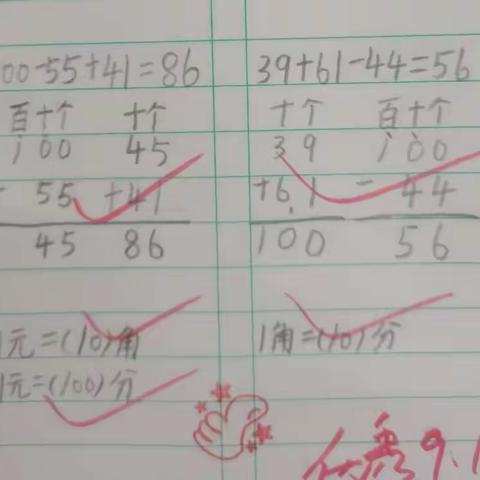 00-55+41=86
百十个 十个
100 45
- 55 +41
45 86
1元=(10)角
1元=(100)分
39+61-44=56
十个 百十个
39 100
+61 - 44
100 56
1角=(10)分
优秀 9.1